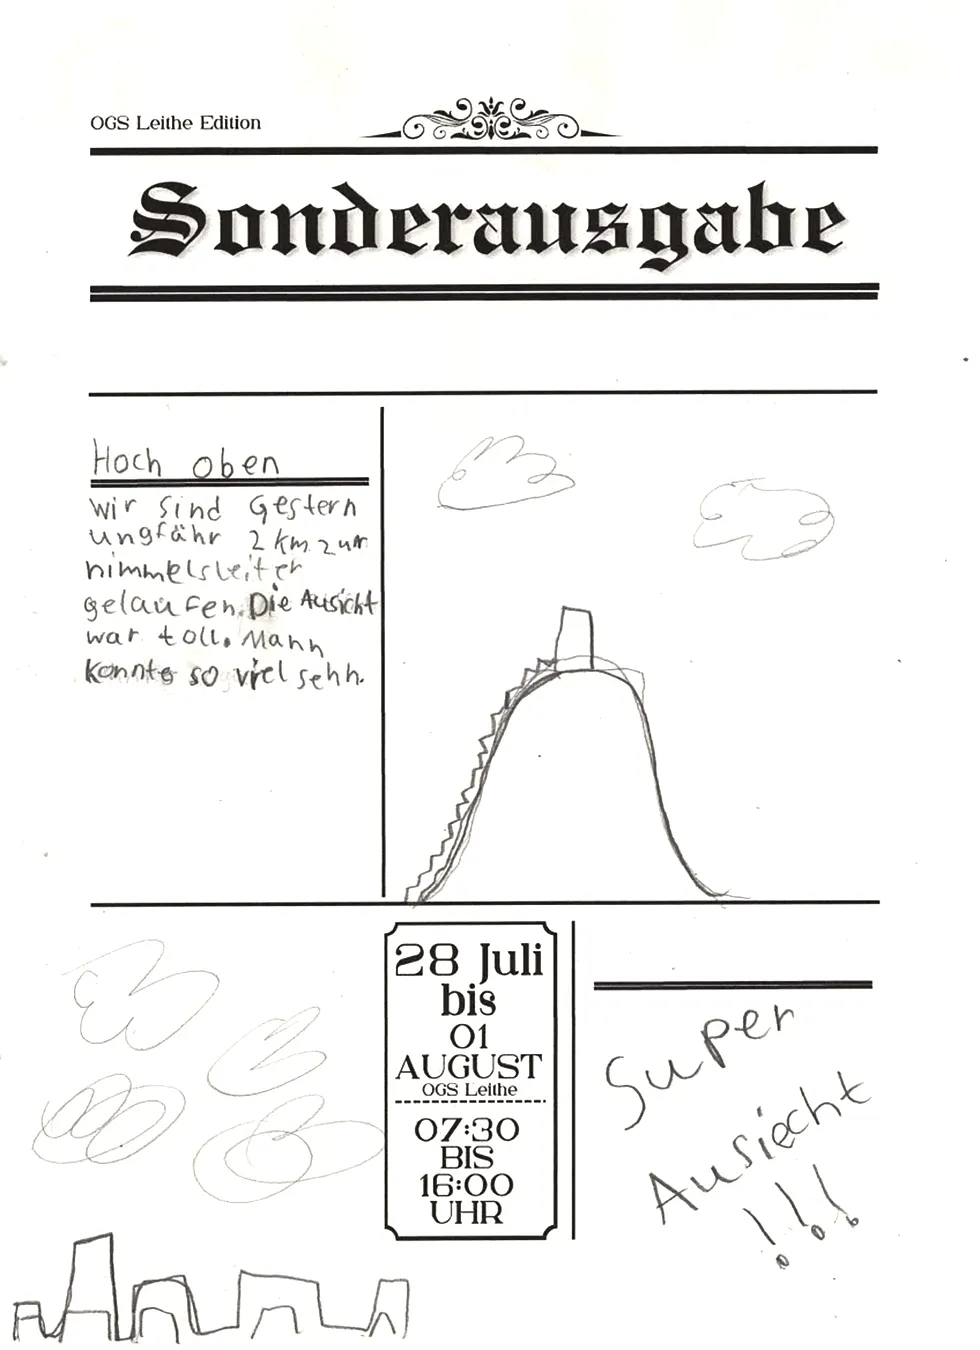 OGS Leithe Edition
Sonderausgabe
Hoch oben
wir sind Gestern
ungfähr 2 km zur
himmelsleiter
gelaufen. Die Ausicht
war toll. Mann
konnte so viel sehn.
28 Juli
bis
01
AUGUST
OGS Leithe
07:30
BIS
16:00
UHR
Super
Ausiecht
!!!